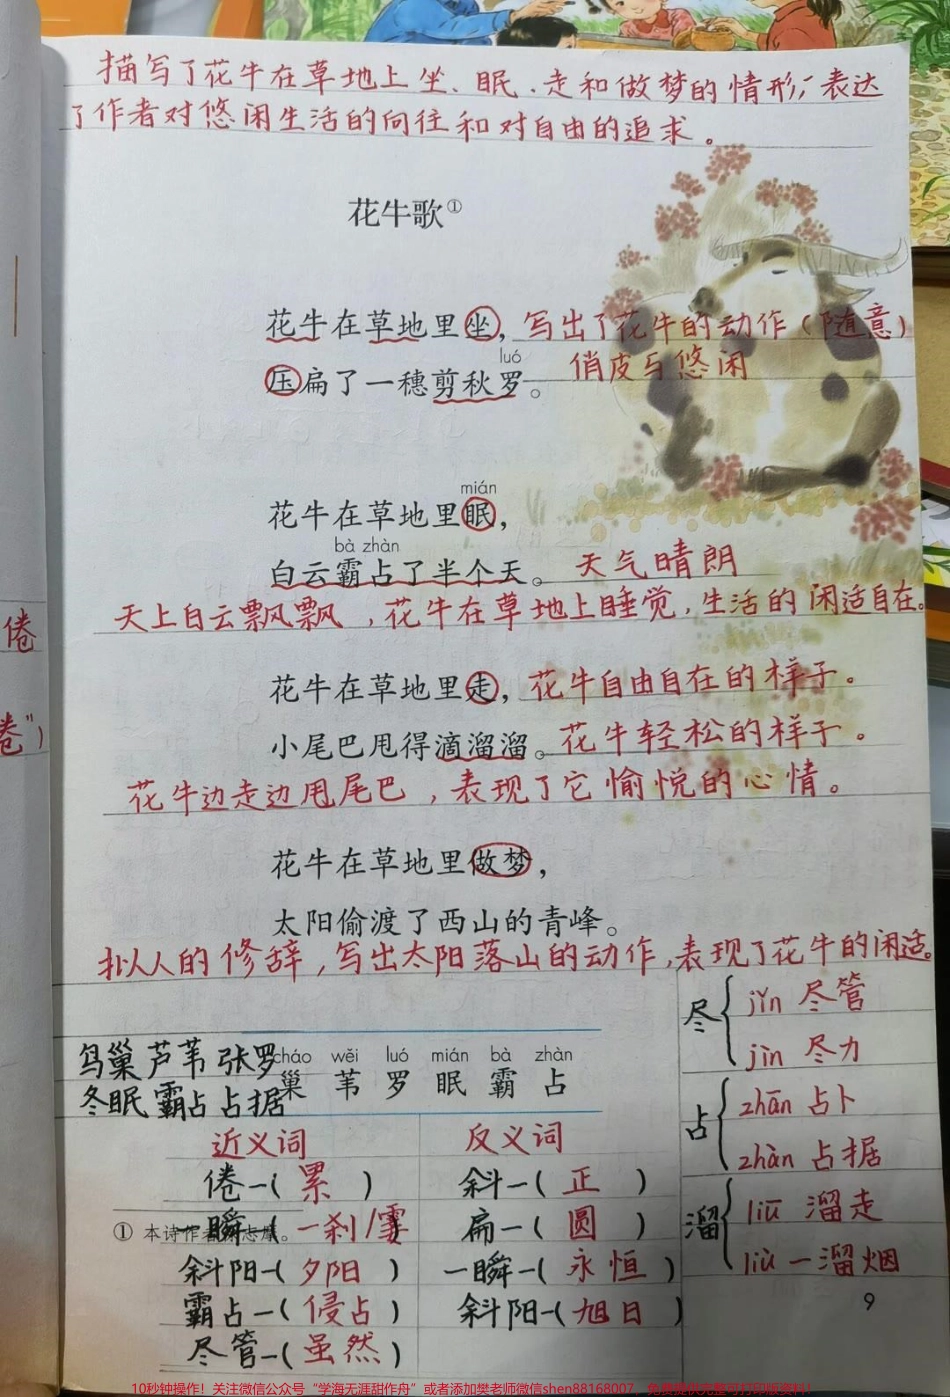 描写了花牛在草地上坐、眠、走和做梦的情形,表达
了作者对悠闲生活的向往和对自由的追求。
花牛歌①
花牛在草地里坐，写出了花牛的动作(随意)
luó
压扁了一穗剪秋罗。俏皮与悠闲
mián
花牛在草地里眠，
bà zhàn
白云霸占了半个天。天气晴朗
天上白云飘飘，花牛在草地上睡觉，生活的闲适自在。
倦
花牛在草地里走，花牛自由自在的样子。
卷”)
小尾巴甩得滴溜溜。花牛轻松的样子。
花牛边走边甩尾巴，表现了它愉悦的心情。
花牛在草地里做梦，
太阳偷渡了西山的青峰。
拟人的修辞，写出太阳落山的动作，表现了花牛的闲适。
尽 jǐn 尽管
jìn 尽力
鸟巢 芦苇 张罗
cháo wěi luó mián bà zhàn
巢 苇 罗 眠 霸 占
冬眠 霸占 占据
占 zhān 占卜
zhàn 占据
近义词 反义词
倦—(累) 斜—(正)
溜 liū 溜走
liù 一溜烟
一瞬—(一刹/霎) 扁—(圆)
① 本诗作者徐志摩。
斜阳—(夕阳) 一瞬—(永恒)
霸占—(侵占) 斜阳—(旭日)
9
尽管—(虽然)
10秒钟操作！关注微信公众号“学海无涯甜作舟”或者添加樊老师微信shen88168007，免费提供完整可打印版资料！